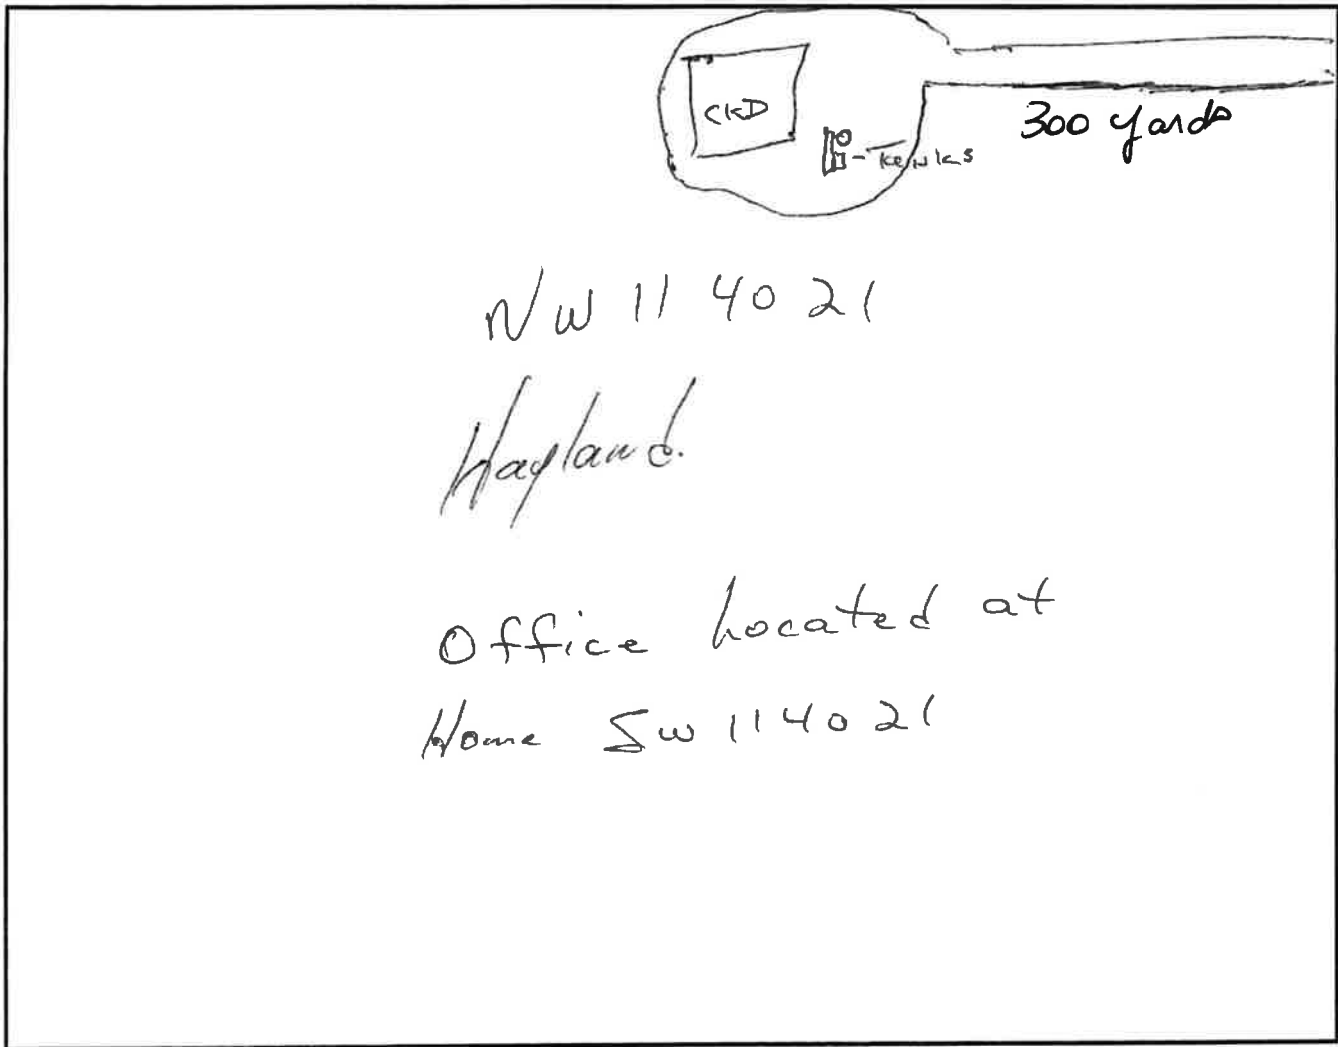 CKD
300 yards
NW 11 40 21
Hayland.
Office Located at
Home SW 11 40 21